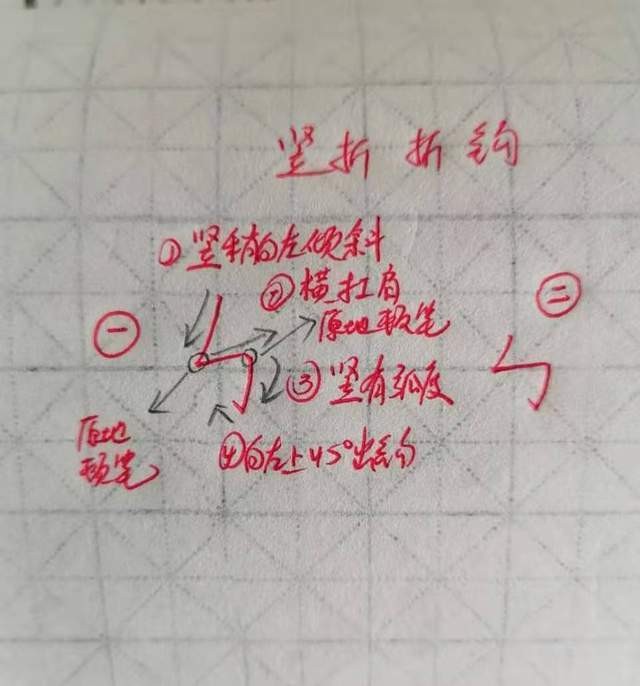 竖折折钩
①竖稍向左倾斜
②横扛肩
原地顿笔
㊀
㊁
③竖有弧度
原地
顿笔
④向左上45°出钩